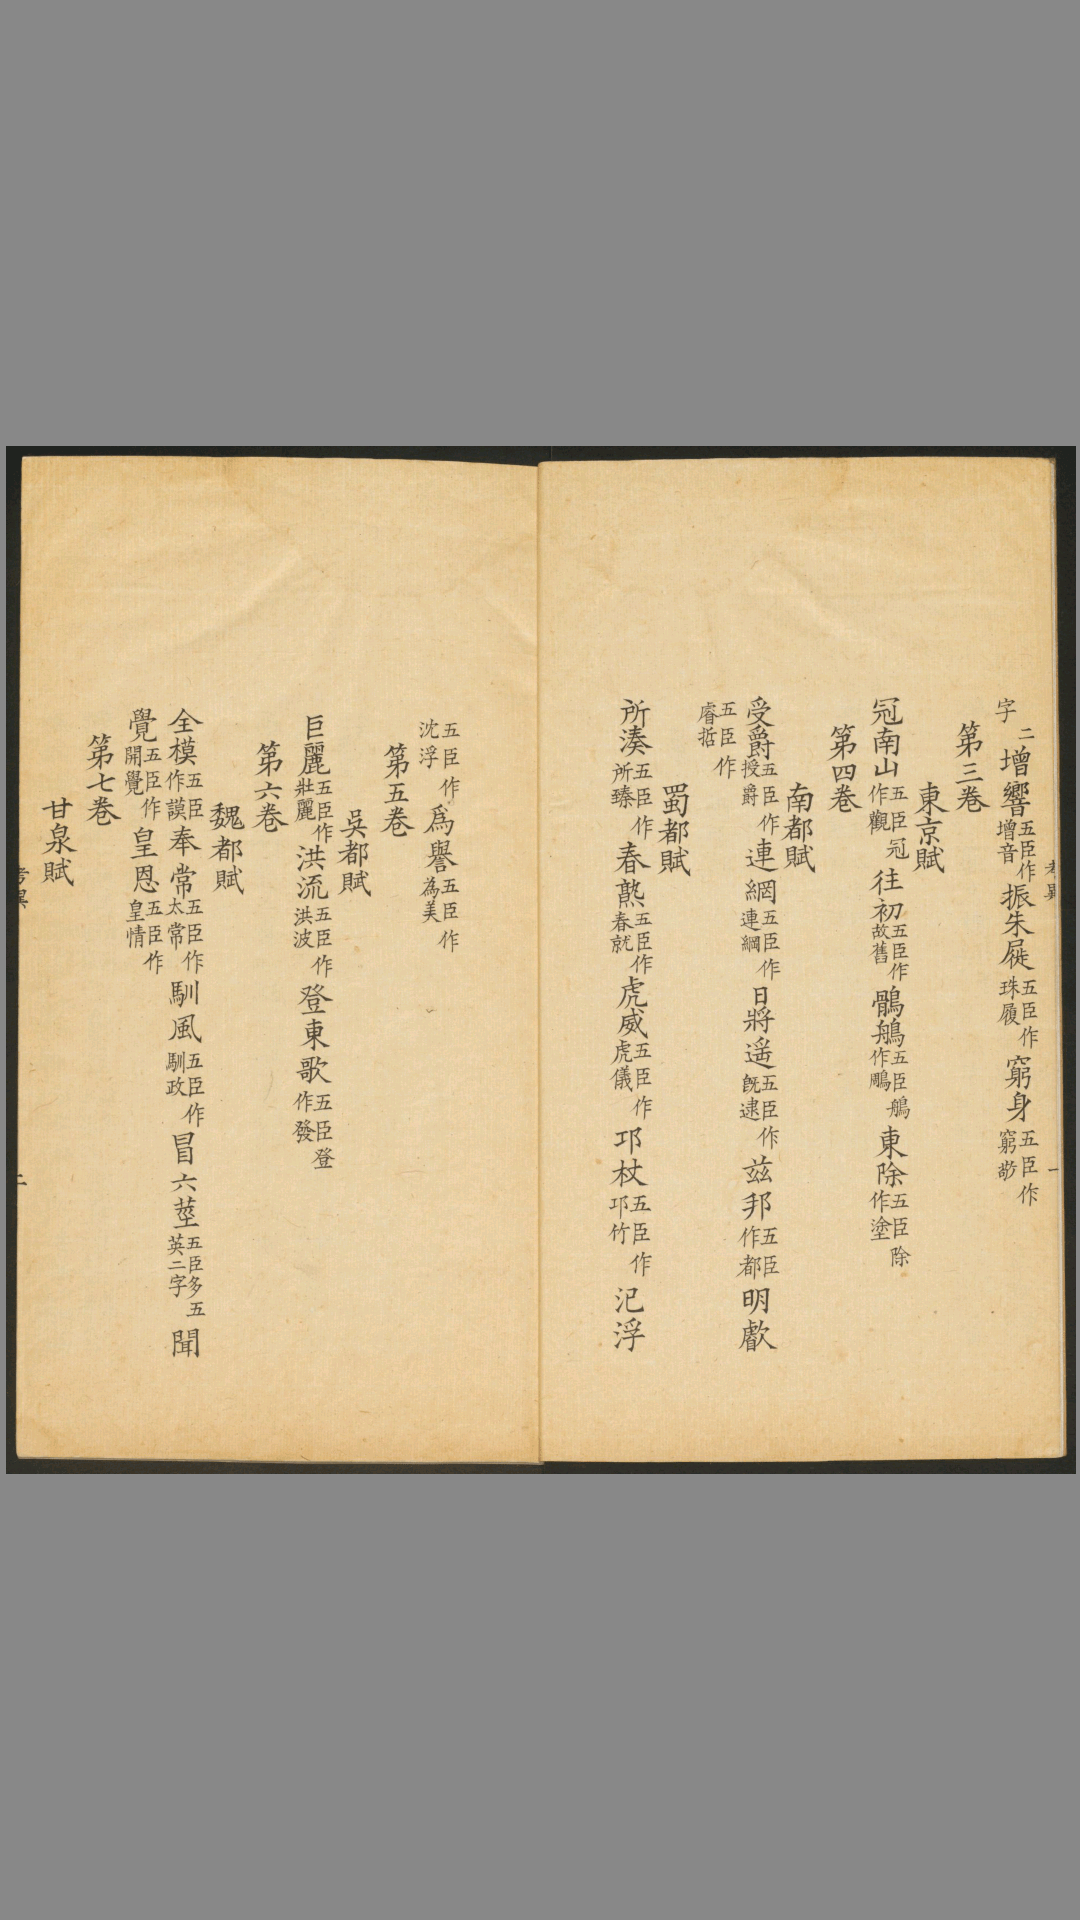 二字增響五臣作增音振朱屣五臣作珠履窮身五臣作窮
第三卷
東京賦
冠南山五臣冠作觀往初五臣作故舊鶻鵃五臣鵃作鵰東除五臣除作塗
第四卷
南都賦
受爵五臣作授爵連網五臣作連綱日將遥五臣作既逮兹邦五臣作都明
五臣作睿哲
蜀都賦
所湊五臣作所臻春爇五臣作春就虎威五臣作虎儀邛杖五臣作邛竹汜浮
五臣作沈浮為譽五臣作為美
第五卷
吳都賦
巨麗五臣作壯麗洪流五臣作洪波登東歌五臣登作發
第六卷
魏都賦
全模五臣作謨奉常五臣作太常馴風五臣作馴政冒六莖五臣多五英二字聞
覺五臣作開覺皇恩五臣作皇情
第七卷
甘泉賦
考異
二